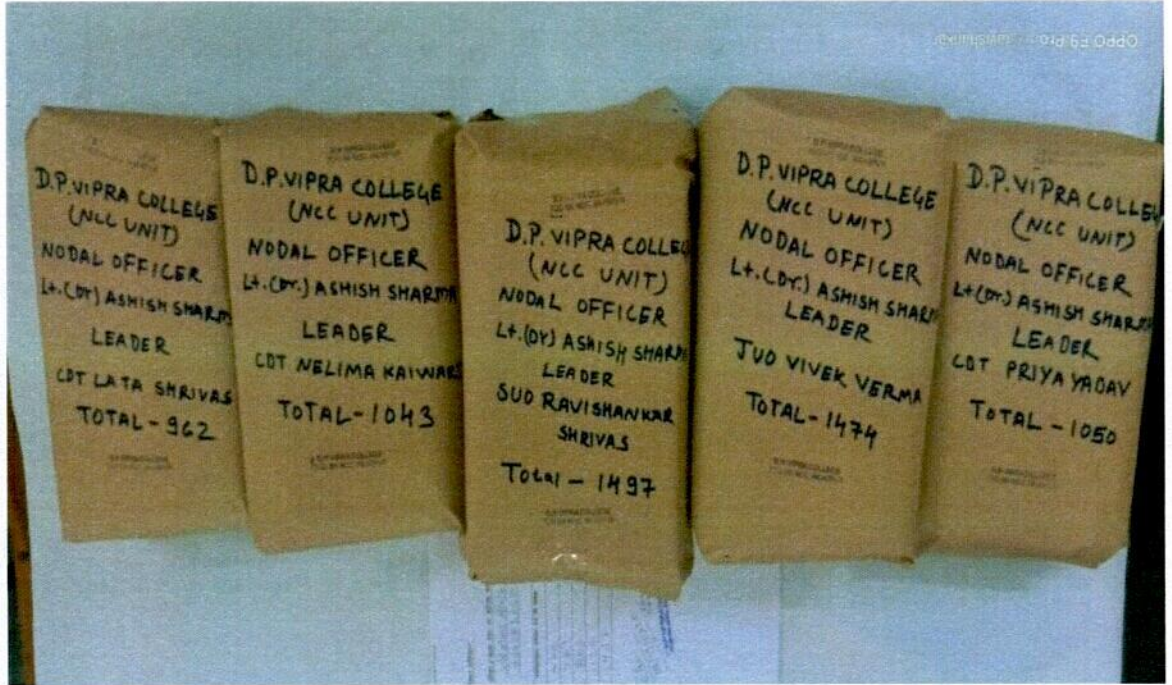 D.P.VIPRA COLLEGE
(NCC UNIT)
NODAL OFFICER
Lt.(Dr) ASHISH SHARM
LEADER
CDT LATA SHRIVAS
TOTAL - 962
D.P.VIPRA COLLEGE
(NCC UNIT)
NODAL OFFICER
Lt.(Dr.) ASHISH SHARMA
LEADER
CDT NELIMA KAIWAR
TOTAL - 1043
D.P. VIPRA COLLEG
(NCC UNIT)
NODAL OFFICER
Lt.(Dr) ASHISH SHARM
LEADER
SUO RAVISHANKAR
SHRIVAS
Total - 1497
D.P. VIPRA COLLEGE
(NCC UNIT)
NODAL OFFICER
Lt.(Dr.) ASHISH SHARM
LEADER
JUO VIVEK VERMA
TOTAL - 1474
D.P. VIPRA COLLEG
(NCC UNIT)
NODAL OFFICER
Lt.(Dr.) ASHISH SHARMA
LEADER
CDT PRIYA YADAV
TOTAL - 1050
OPPO F9 Pro